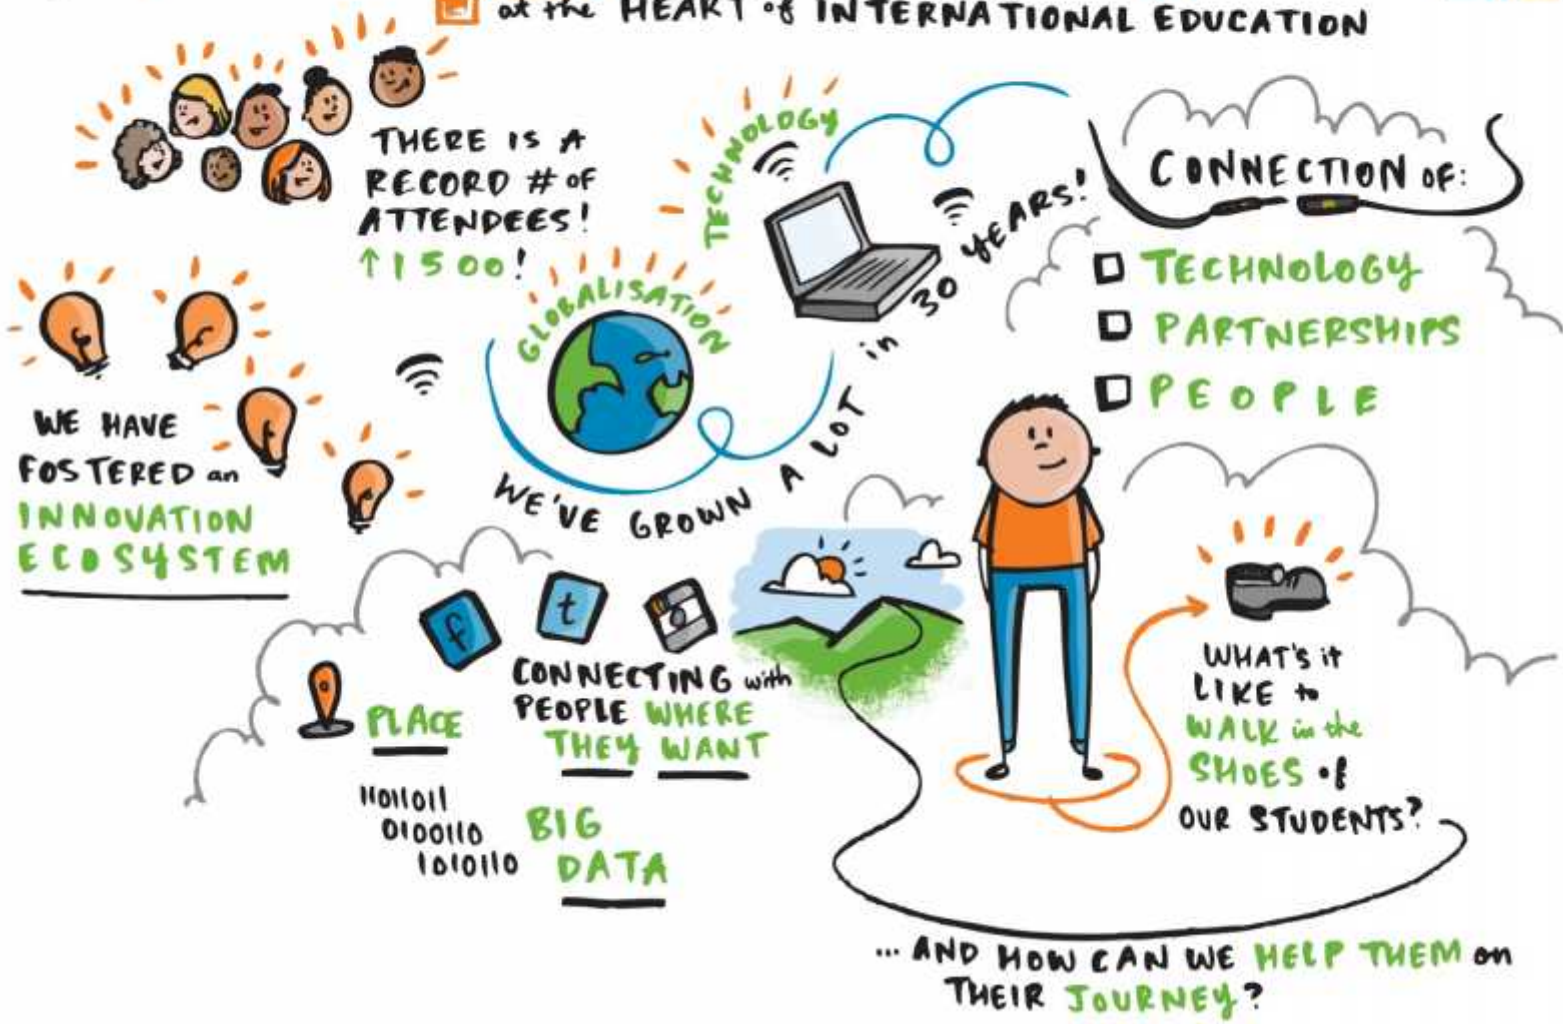 at the HEART of INTERNATIONAL EDUCATION
THERE IS A
RECORD # OF
ATTENDEES!
↑1500!
TECHNOLOGY
GLOBALISATION
WE'VE GROWN A LOT in 30 YEARS!
CONNECTION OF:
TECHNOLOGY
PARTNERSHIPS
PEOPLE
WE HAVE
FOSTERED an
INNOVATION
ECOSYSTEM
f
t
CONNECTING with
PEOPLE WHERE
THEY WANT
PLACE
11011011
0100110
1010110
BIG
DATA
WHAT'S it
LIKE to
WALK in the
SHOES of
OUR STUDENTS?
... AND HOW CAN WE HELP THEM on
THEIR JOURNEY?